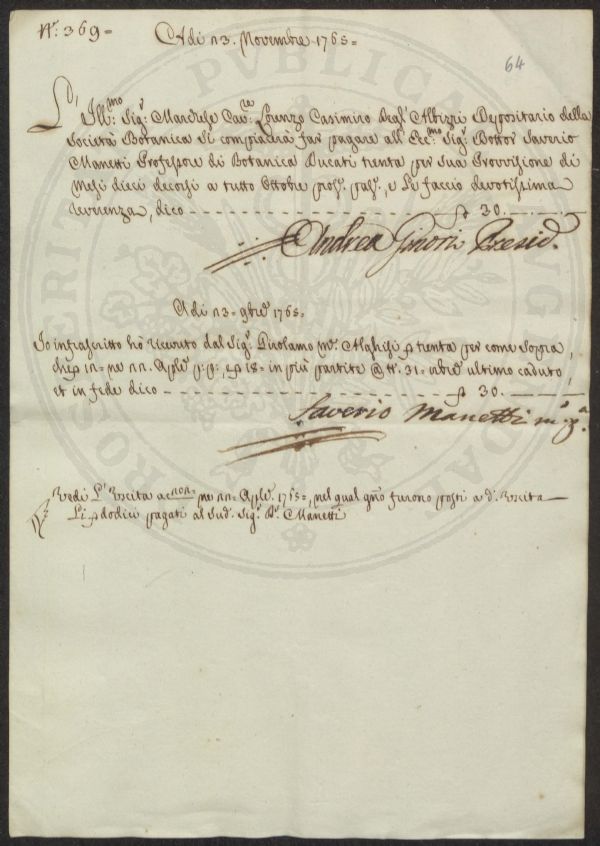 Nº. 369=
Adi 13. Novembre 1765=
64
L'Ill:mo Sig: Marchese Cav:re Lorenzo Casimiro degl'Albizzi Depositario della
Società Botanica Si compiacerà far pagare all'Ecc:mo Sig: Dottor Saverio
Manetti Professore di Botanica Ducati trenta per Sua Provvisione di
Mesi dieci decorsi a tutto Ottobre pros: pas:, e Le faccio devotissima
reverenza, dico 30.
Andrea Ginori Presid.
Adi 13= 9bre 1765=
Io infrascritto hò ricevuto dal Sig: Girolamo trenta per come Sopra,
in più partite ultimo caduto,
et in fede dico 30.
Saverio Manetti
Vedi L'Uscita 11= Aple. 1765=, nel qual furono posti a d: Uscita
dodici pagati al Sud: Sig: Manetti
ROSPIGLIOSI PUBLICA MERITO